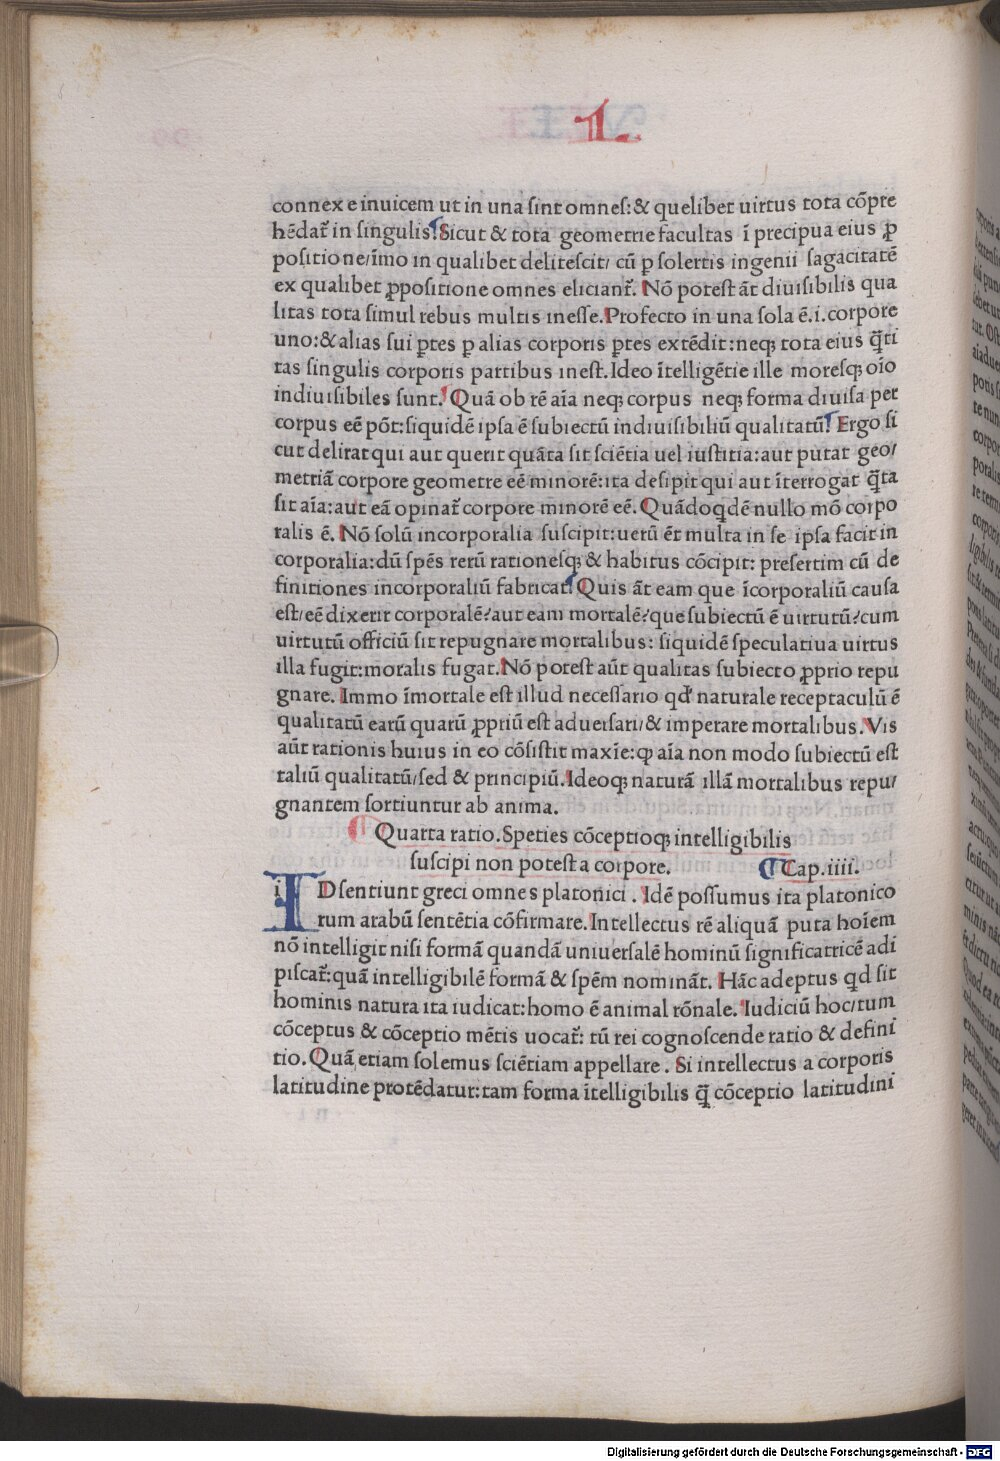 L
connexe inuicem ut in una ſint omneſ:& quelibet uirtus tota cõpre
hẽdat᷑ in ſingulis. Sicut & tota geometrie facultas ĩ precipua eius ꝓ
poſitione/ĩmo in qualibet deliteſcit/ cũ ꝑ ſolertis ingenii ſagacitatẽ
ex qualibet ꝓpoſitione omnes eliciant᷑. Nõ poteſt ãt diuiſibilis qua
litas tota ſimul rebus multis ineſſe. Profecto in una ſola ẽ.i.corpore
uno:& alias ſui ꝑtes ꝑ alias corporis ꝑtes extẽdit:neqꝫ tota eius q̃ti
tas ſingulis corporis partibus ineſt. Ideo ĩtelligẽtie ille moreſqꝫ oĩo
indiuiſibiles ſunt. Quã ob rẽ aĩa neqꝫ corpus neqꝫ forma diuiſa per
corpus eẽ põt:ſiquidẽ ipſa ẽ ſubiectũ indiuiſibiliũ qualitatũ. Ergo ſi
cut delirat qui aut querit quãta ſit ſciẽtia uel iuſtitia:aut putat geo/
metriã corpore geometre eẽ minorẽ:ita deſipit qui aut ĩterrogat q̃ta
ſit aĩa:aut eã opinat᷑ corpore minorẽ eẽ. Quãdoqdẽ nullo mõ corpo
ralis ẽ. Nõ ſolũ incorporalia ſuſcipit:uerũ ẽt multa in ſe ipſa facit in
corporalia:dũ ſpẽs rerũ rationeſqꝫ & habitus cõcipit: preſertim cũ de
finitiones incorporaliũ fabricat. Quis ãt eam que ĩcorporaliũ cauſa
eſt/eẽ dixerit corporalẽ?aut eam mortalẽ?que ſubiectũ ẽ uirtutũ?cum
uirtutũ officiũ ſit repugnare mortalibus: ſiquidẽ ſpeculatiua uirtus
illa fugit:moralis fugat. Nõ poteſt aũt qualitas ſubiecto ꝓprio repu
gnare. Immo ĩmortale eſt illud neceſſario qd' naturale receptaculũ ẽ
qualitatũ earũ quarũ ꝓpriũ eſt aduerſari/& imperare mortalibus. Vis
aũt rationis huius in eo cõſiſtit maxĩe:ꝙ aĩa non modo ſubiectũ eſt
taliũ qualitatũ/ſed & principiũ. Ideoqꝫ naturã illã mortalibus repu/
gnantem ſortiuntur ab anima.
Quarta ratio. Speties cõceptioqꝫ intelligibilis
ſuſcipi non poteſt a corpore. Cap.iiii.
iD ſentiunt greci omnes platonici . Idẽ poſſumus ita platonico
rum arabũ ſentẽtia cõfirmare. Intellectus rẽ aliquã puta hoĩem
nõ intelligit niſi formã quandã uniuerſalẽ hominũ ſignificatricẽ adi
piſcat᷑:quã intelligibilẽ formã & ſpẽm nominãt. Hãc adeptus qd ſit
hominis natura ita iudicat:homo ẽ animal rõnale. Iudiciũ hoc/tum
cõceptus & cõceptio mẽtis uocat᷑: tũ rei cognoſcende ratio & defini
tio. Quã etiam ſolemus ſciẽtiam appellare . Si intellectus a corporis
latitudine protẽdatur:tam forma ĩtelligibilis q̃ cõceptio latitudini
Digitalisierung gefördert durch die Deutsche Forschungsgemeinschaft - DFG